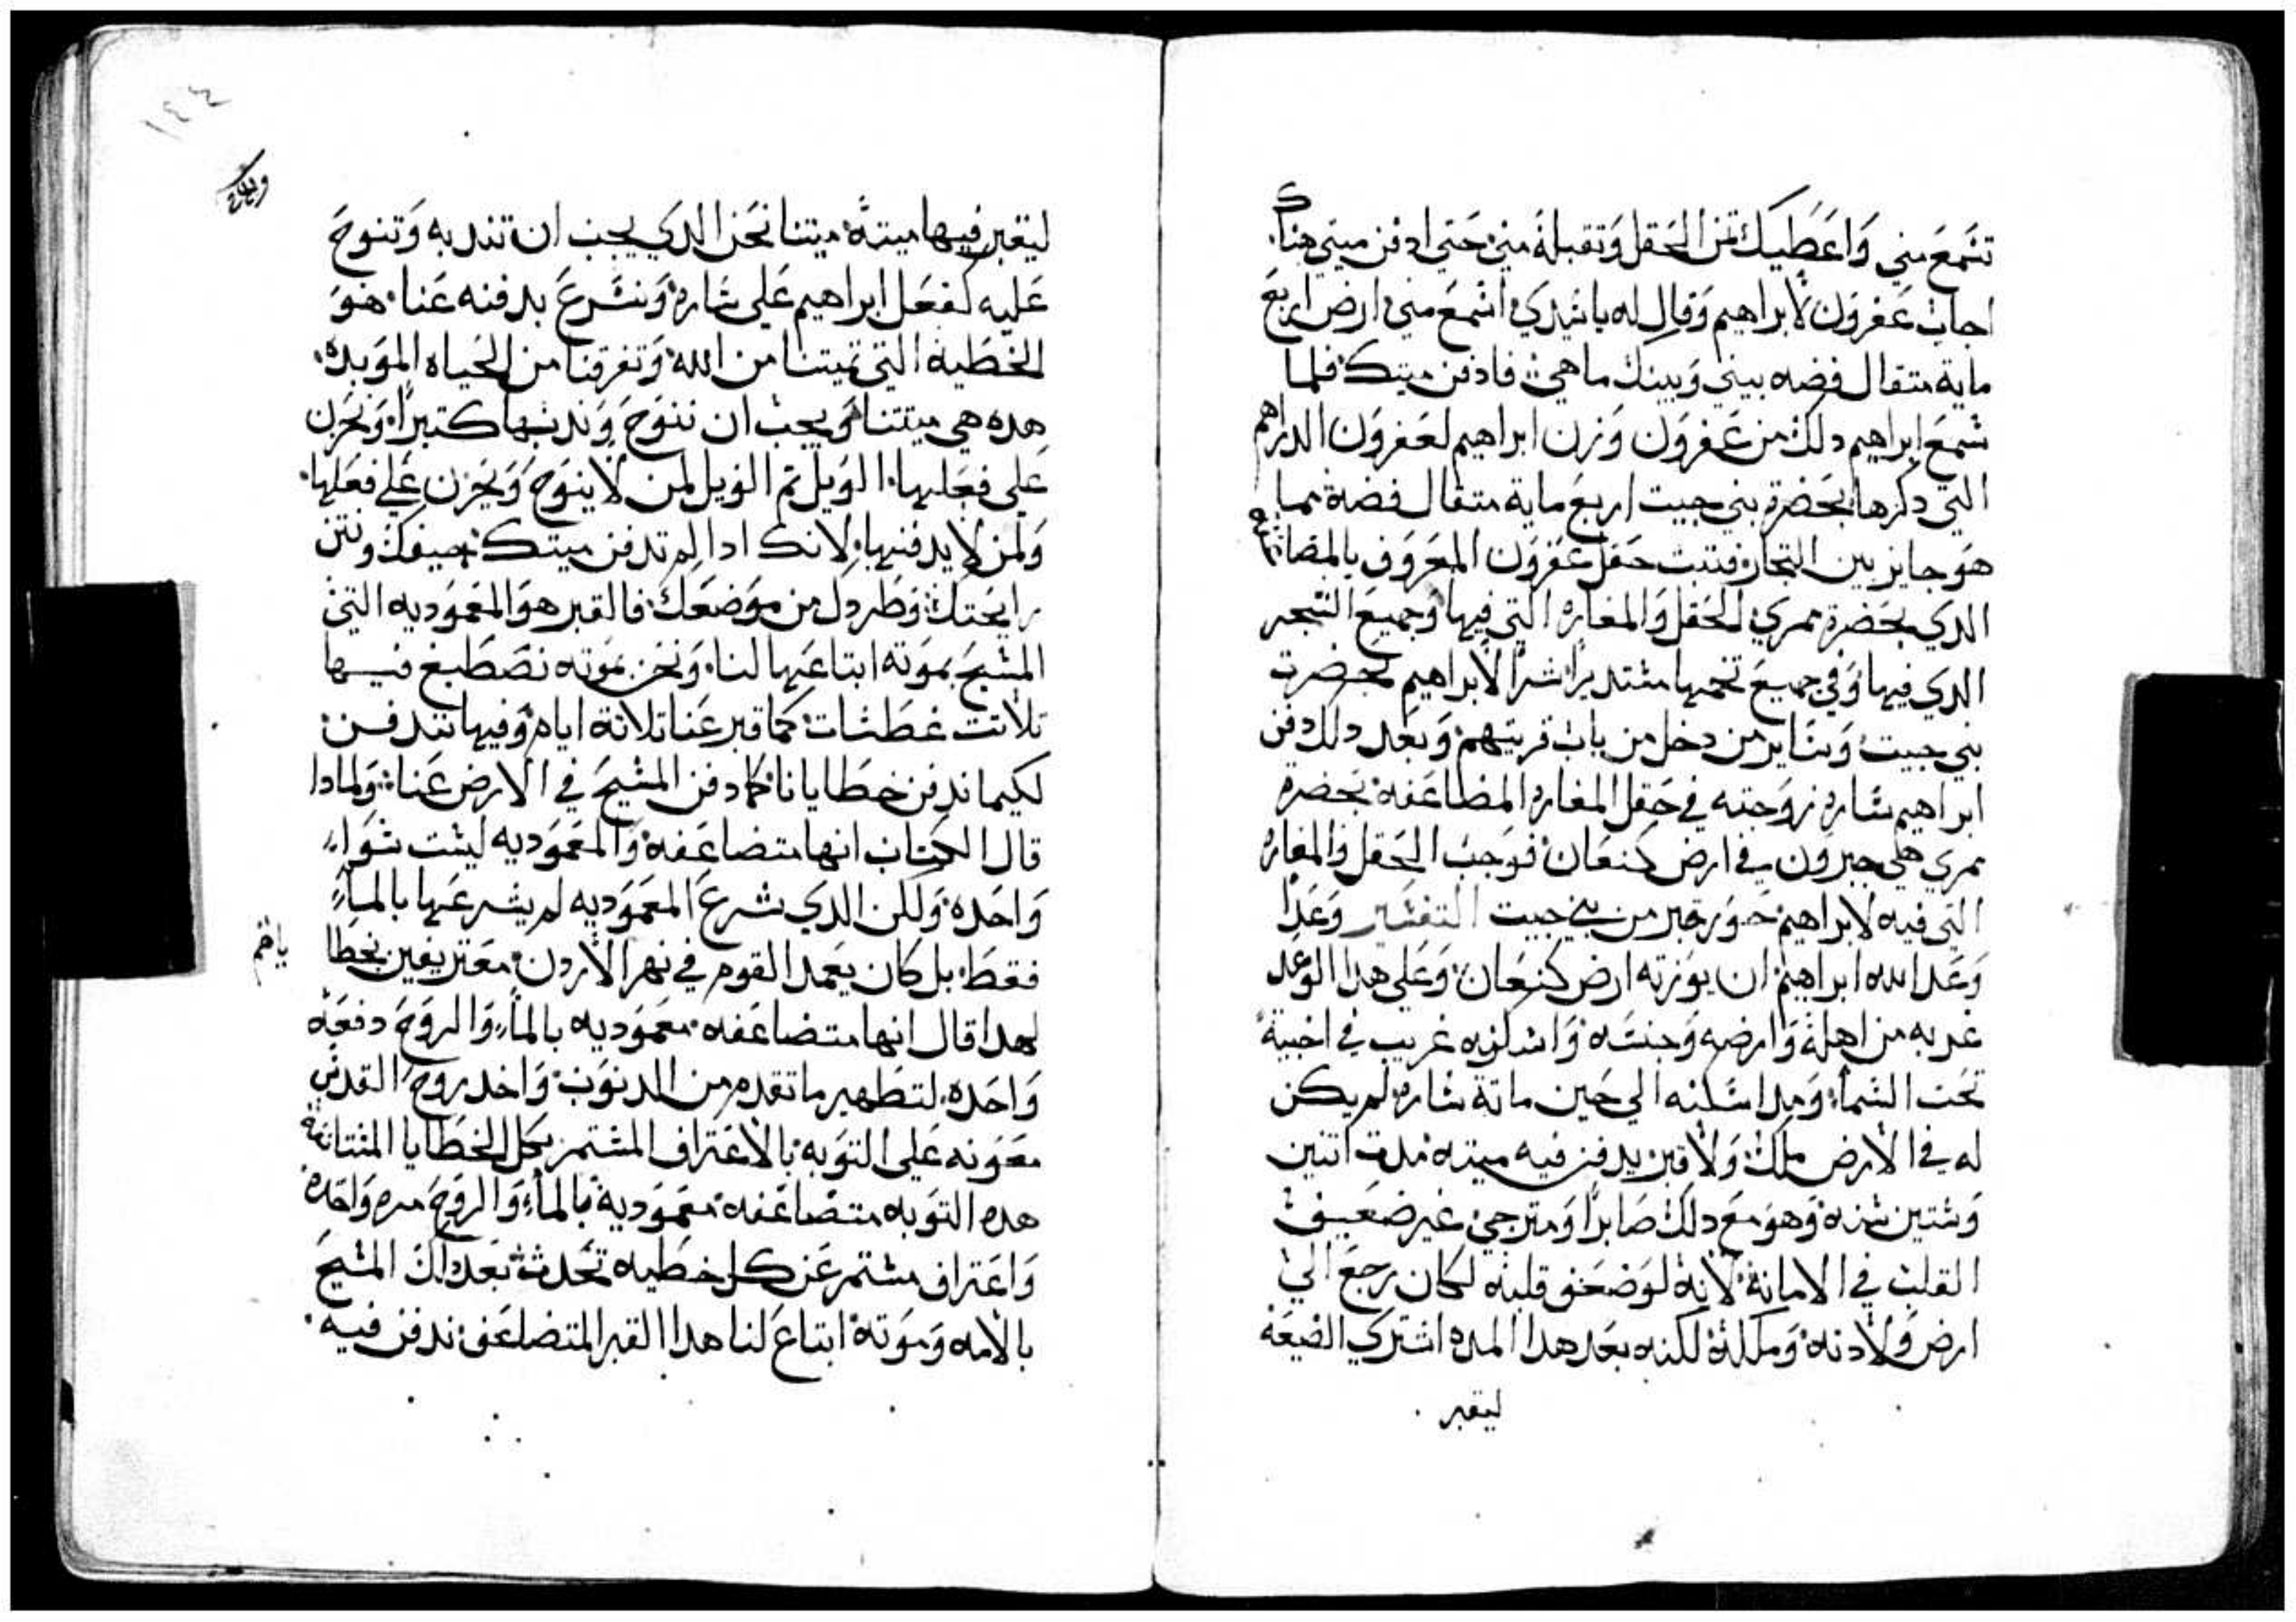 تسمع مني واعطيك تمن الحقل وتقبله مني حتي ادفن ميتي هناك
اجاب عفرون لابراهيم وقال له يا سيدي اسمع مني ارض اربع
ماية متقال فضه بيني وبينك ما هي فادفن ميتك فلما
سمع ابراهيم دلك من عفرون وزن ابراهيم لعفرون الدراهم
التي دكرها بحضرة بني حيت اربع ماية متقال فضة مما
هو جايز بين التجار فتبت حقل عفرون المعروف بالمضاعفه
الدي بحضرة ممري الحقل والمغاره التي فيها وجميع الشجر
الدي فيها وفي جميع تخمها مستديرا شرا لابراهيم بحضرت
بني حيت وساير من دخل من باب قريتهم وبعد دلك دفن
ابراهيم ساره زوجته في حقل المغاره المضاعفه بحضرة
ممري هي حبرون في ارض كنعان فوجب الحقل والمغاره
التي فيه لابراهيم حوز قبر من بني حيت التفسير وعدا
وعد الله ابراهيم ان يورته ارض كنعان وعلي هدا الوعد
غربه من اهله وارضه وجنسه واسكنه غريب في اخبية
تحت السماء ومدا سكنه الي حين ماتة ساره لم يكن
له في الارض ملك ولا قبر يدفن فيه ميته مدت اتنين
وستين سنه وهو مع دلك صابرا ومترجي غير ضعيف
القلب في الامانة لانه لو ضعف قلبه لكان رجع الي
ارض ولادته ومملكته لكنه بعد هدا المده اشتري الضيعة
ليقبر
١٤٤
ليقبر فيها ميتة ميتنا نحن الدي يجب ان تندبه وتنوح
عليه كفعل ابراهيم علي ساره ونسرع بدفنه عنا هو
الخطية التي تميتنا من الله وتفرقنا من الحياه الموبده
هده هي ميتتنا ويجب ان ننوح وندبها كتيرا ونحزن
علي فعلها الويل تم الويل لمن لا ينوح ويحزن علي فعلها
ولمن لا يدفنها لانك ادا لم تدفن ميتك جيفك ونتن
رايحتك وطردك من موضعك فالقبر هو المعموديه التي
المسيح بموته ابتاعها لنا ونحن بموته نصطبغ فيها
تلاتت غطسات كما قبر عنا تلاتة ايام وفيها نندفن
لكيما ندفن خطايانا كما دفن المسيح في الارض عنا ولمادا
قال الكتاب انها متضاعفه والمعموديه ليست سواء
واحده ولكن الدي شرع المعموديه لم يشرعها بالماء
فقط بل كان يعمد القوم في نهر الاردن معترفين بخطا
ياهم
لهدا قال انها متضاعفه معموديه بالماء والروح دفعه
واحده لتطهير ما تقدم من الدنوب واخد روح القدس
معونه علي التوبه بالاعتراف المستمر بكل الخطايا المستانفه
هده التوبه متضاعفه معمودية بالماء والروح مره واحده
واعتراف مستمر عن كل خطيه تحدث بعد دلك المسيح
بالامه وموته ابتاع لنا هدا القبر المتضاعف ندفن فيه